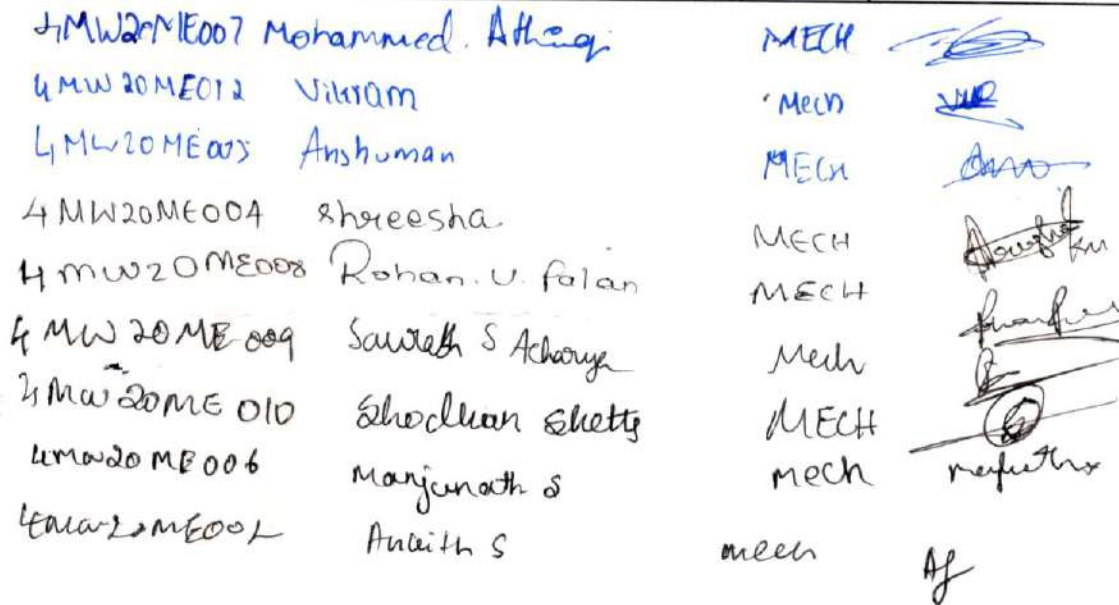 4MW20ME007 Mohammed. MECH
4MW20ME012 Vikram Mech
4MW20ME003 Anshuman MECH
4MW20ME004 Shreesha MECH
4MW20ME008 Rohan. U. Palan MECH
4MW20ME009 Saurabh S Acharya Mech
4MW20ME010 Shodhan Shetty MECH
4MW20ME006 Manjunath S mech
4MW20ME002 Ankith S mech